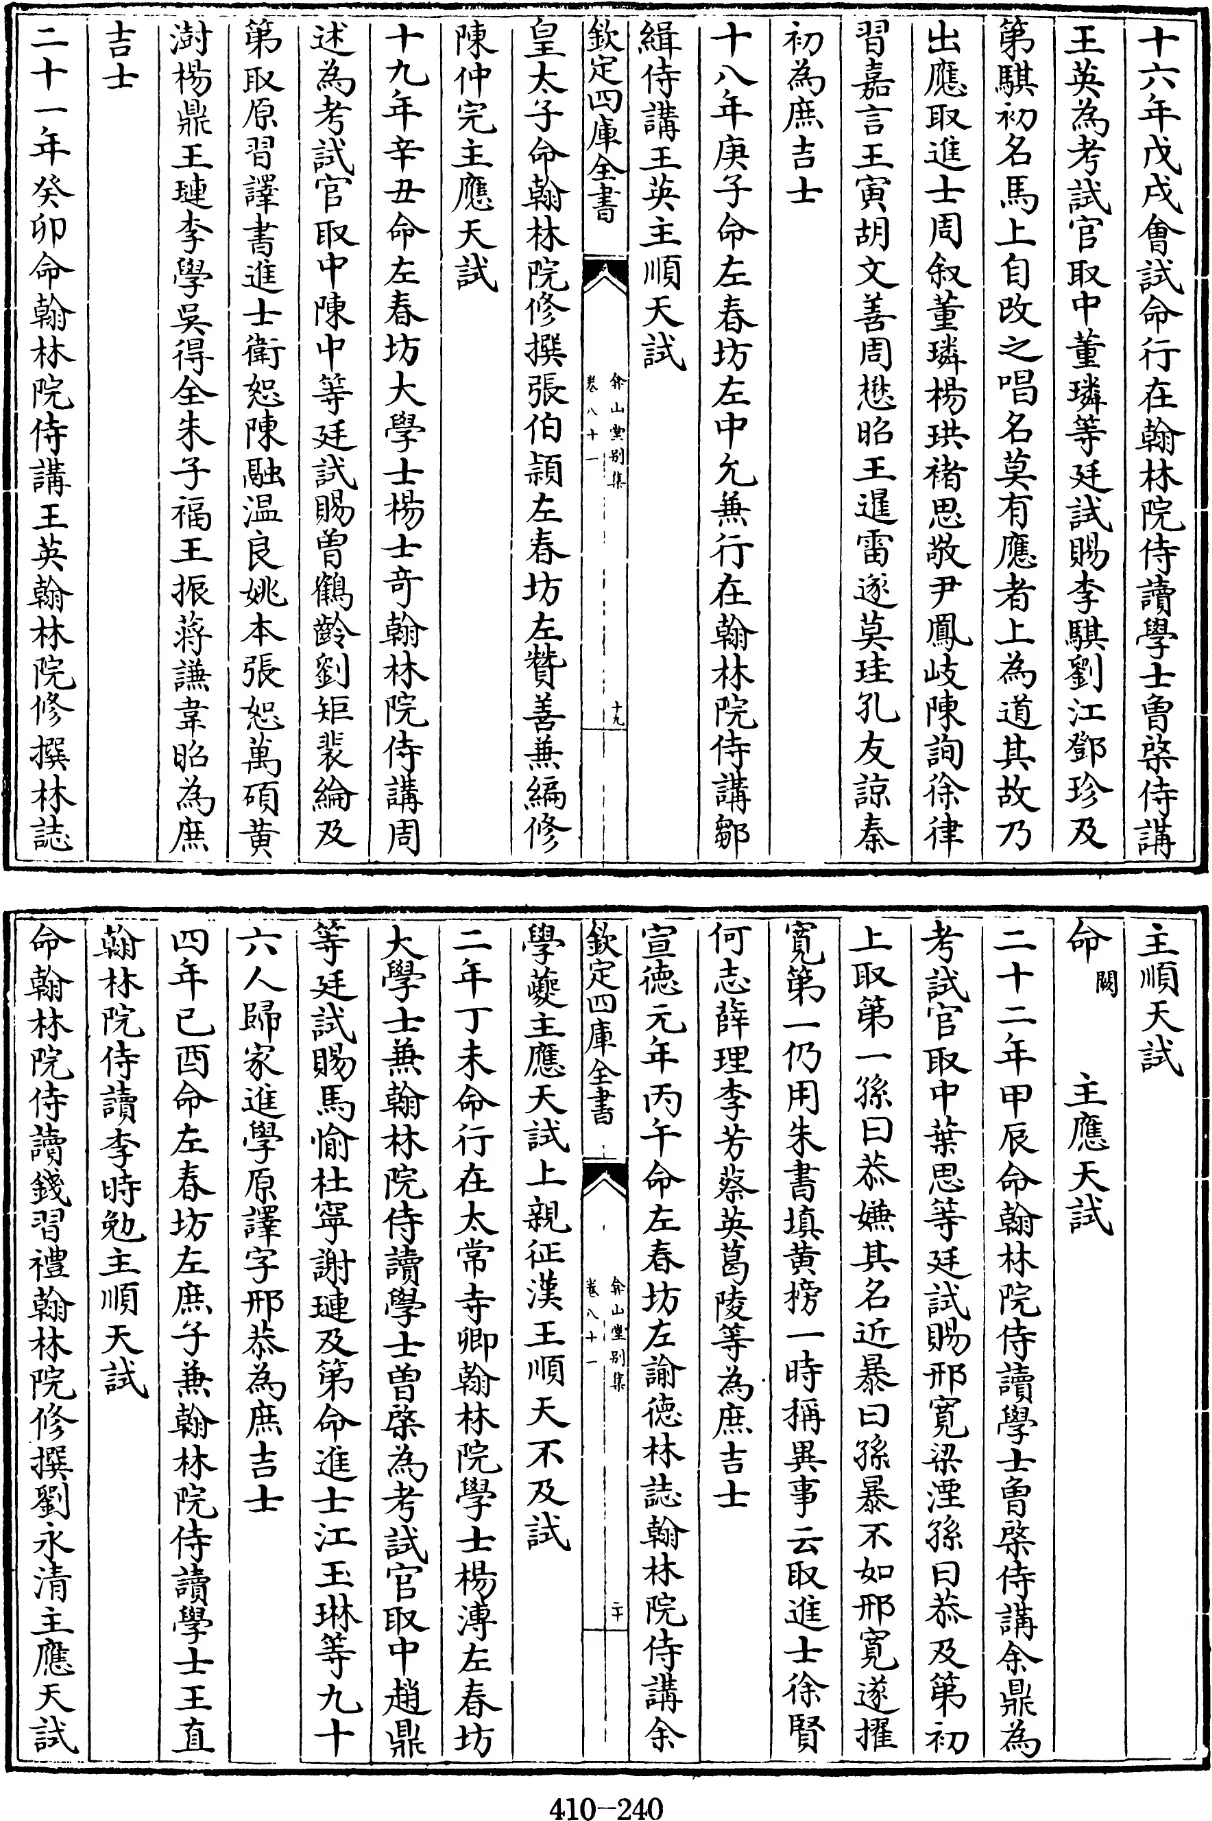 十六年戊戌會試命行在翰林院侍讀學士曾棨侍講
王英為考試官取中董璘等廷試賜李騏劉江鄧珍及
第騏初名馬上自改之唱名莫有應者上為道其故乃
出應取進士周叙董璘楊珙褚思敬尹鳳岐陳詢徐律
習嘉言王寅胡文善周懋昭王暹雷遂莫珪孔友諒秦
初為庶吉士
十八年庚子命左春坊左中允兼行在翰林院侍講鄒
緝侍講王英主順天試
欽定四庫全書
弇山堂别集
卷八十一
十九
皇太子命翰林院修撰張伯潁左春坊左贊善兼編修
陳仲完主應天試
十九年辛丑命左春坊大學士楊士竒翰林院侍講周
述為考試官取中陳中等廷試賜曾鶴齡劉矩裴綸及
第取原習譯書進士衛恕陳融温良姚本張恕萬碩黄
澍楊鼎王璉李學吳得全朱子福王振蔣謙韋昭為庶
吉士
二十一年癸卯命翰林院侍講王英翰林院修撰林誌
主順天試
命 闕 主應天試
二十二年甲辰命翰林院侍讀學士曾棨侍講余鼎為
考試官取中葉恩等廷試賜邢寛梁湮孫曰恭及第初
上取第一孫曰恭嫌其名近暴曰孫暴不如邢寛遂擢
寛第一仍用朱書填黄榜一時稱異事云取進士徐賢
何志薛理李芳蔡英葛陵等為庶吉士
宣德元年丙午命左春坊左諭德林誌翰林院侍講余
欽定四庫全書
弇山堂别集
卷八十一
二十
學夔主應天試上親征漢王順天不及試
二年丁未命行在太常寺卿翰林院學士楊溥左春坊
大學士兼翰林院侍讀學士曾棨為考試官取中趙鼎
等廷試賜馬愉杜寧謝璉及第命進士江玉琳等九十
六人歸家進學原譯字邢恭為庶吉士
四年己酉命左春坊左庶子兼翰林院侍讀學士王直
翰林院侍讀李時勉主順天試
命翰林院侍讀錢習禮翰林院修撰劉永清主應天試
410-240